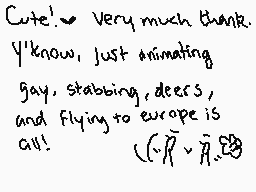 Cute! very much thank.
Y'know, just animating
gay, stabbing, deers,
and flying to europe is
all!